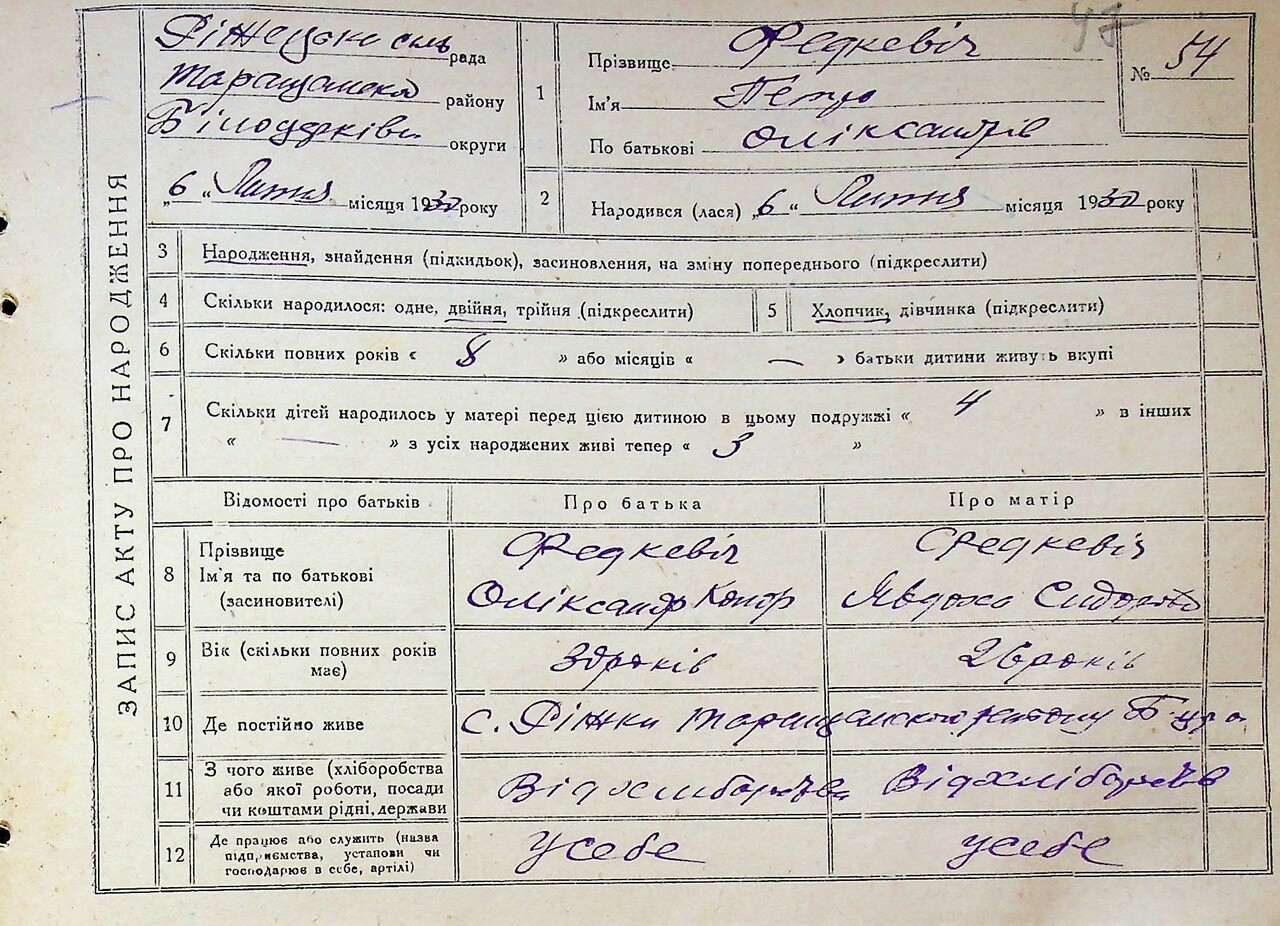 47
ЗАПИС АКТУ ПРО НАРОДЖЕННЯ
Ріжецька сіль рада
Таращанска району
Білоцерківс округи
„6 “ Липня місяця 1930 року
1
Прізвище Федкевіч
Ім'я Петро
По батькові Оліксантрів
№ 54
2
Народився (лася) „6 “ Липня місяця 1930 року
3 Народження, знайдення (підкидьок), засиновлення, на зміну попереднього (підкреслити)
4 Скільки народилося: одне, двійня, трійня (підкреслити)
5 Хлопчик, дівчинка (підкреслити)
6 Скільки повних років « 8 » або місяців « — » батьки дитини живуть вкупі
7 Скільки дітей народилось у матері перед цією дитиною в цьому подружжі « 4 » в інших
« — » з усіх народжених живі тепер « 3 »
Відомості про батьків
Про батька
Про матір
8 Прізвище
Ім'я та по батькові
(засиновителі)
Федкевіч
Оліксандр
Федкевіч
Явдоха
9 Вік (скільки повних років
має)
років
26 років
10 Де постійно живе
с. Ріжки Таращанского району Б ц о
11 З чого живе (хліборобства
або якої роботи, посади
чи коштами рідні, держави
Відхліборства
Відхліборств
12 Де працює або служить (назва
підприємства, установи чи
господарює в себе, артілі)
усебе
усебе